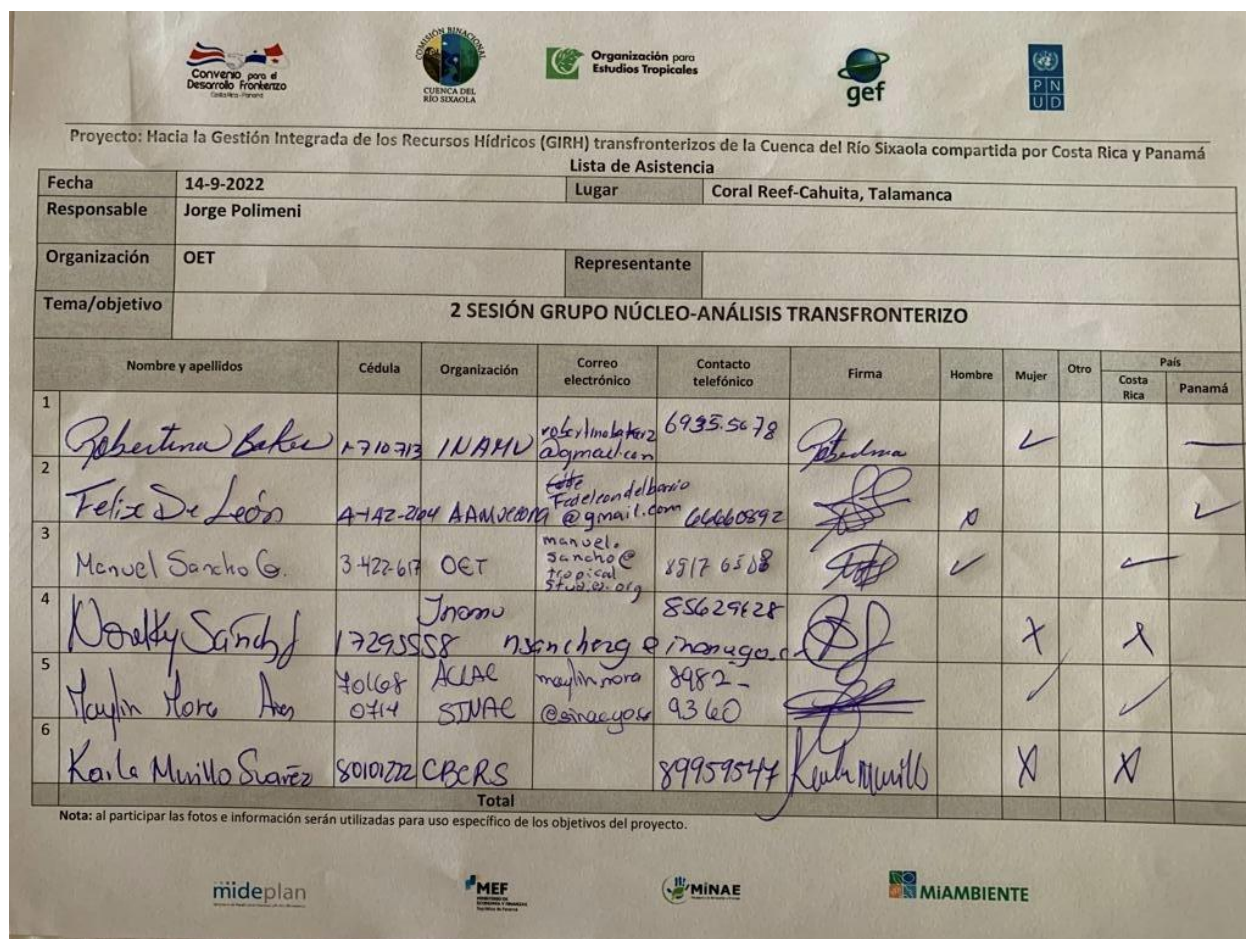 Convenio para el
Desarrollo Fronterizo
Costa Rica - Panamá
COMISIÓN BINACIONAL
CUENCA DEL
RÍO SIXAOLA
Organización para
Estudios Tropicales
gef
P N
U D
Proyecto: Hacia la Gestión Integrada de los Recursos Hídricos (GIRH) transfronterizos de la Cuenca del Río Sixaola compartida por Costa Rica y Panamá
Lista de Asistencia
Fecha 14-9-2022 Lugar Coral Reef-Cahuita, Talamanca
Responsable Jorge Polimeni
Organización OET Representante
Tema/objetivo 2 SESIÓN GRUPO NÚCLEO-ANÁLISIS TRANSFRONTERIZO
Nombre y apellidos Cédula Organización Correo electrónico Contacto telefónico Firma Hombre Mujer Otro País
Costa Rica Panamá
1 Robertina Baker INAMU @gmail.com 6935.5678
2 Felix De León Fedeleondelbarrio @gmail.com 66660892
3 Manuel Sancho G. 3-422-617 OET manuel.sancho@tropicalstudies.org
4 17295558 Inamu 85629628
5 Maylin Mora 70168 0714 ACLAC SINAC maylin.mora 8982-9360
6 Karla Murillo Suarez 80101222 CBCRS 89959547 Karla Murillo
Total
Nota: al participar las fotos e información serán utilizadas para uso específico de los objetivos del proyecto.
mideplan
MEF
MINISTERIO DE
ECONOMÍA Y FINANZAS
República de Panamá
MiNAE
MiAMBIENTE